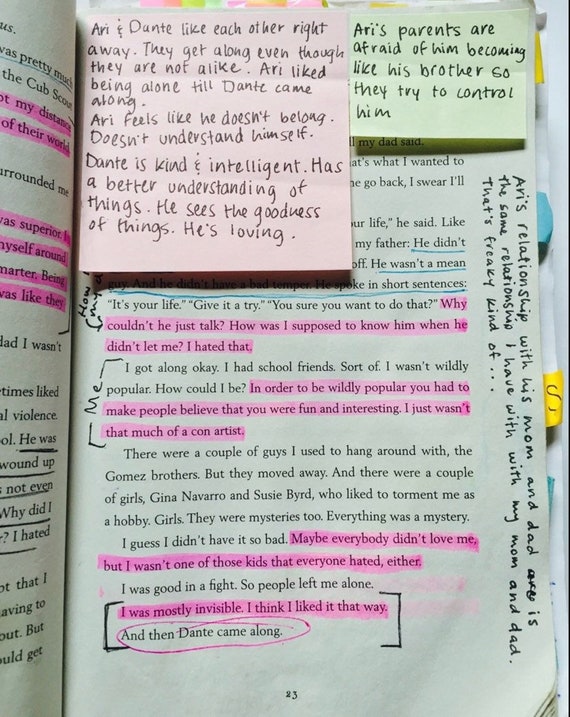 us.
was pretty much
the Cub Scout
ot my distance
of their world
urrounded me
was superior. I
myself around
marter. Being
was like they
dad I wasn't
etimes liked
al violence.
ool. He was
wound up
s not even
Why did I
r? I hated
ot that I
aving to
out. But
ould get
Ari & Dante like each other right
away. They get along even though
they are not alike. Ari liked
being alone till Dante came
along.
Ari feels like he doesn't belong.
Doesn't understand himself.
Dante is kind & intelligent. Has
a better understanding of
things. He sees the goodness
of things. He's loving.
Ari's parents are
afraid of him becoming
like his brother so
they try to control
him
my dad said.
at's what I wanted to
he go back, I swear I'll
ur life," he said. Like
my father: He didn't
off. He wasn't a mean
guy. And he didn't have a bad temper. He spoke in short sentences:
"It's your life." "Give it a try." "You sure you want to do that?" Why
couldn't he just talk? How was I supposed to know him when he
didn't let me? I hated that.
Me
I got along okay. I had school friends. Sort of. I wasn't wildly
popular. How could I be? In order to be wildly popular you had to
make people believe that you were fun and interesting. I just wasn't
that much of a con artist.
There were a couple of guys I used to hang around with, the
Gomez brothers. But they moved away. And there were a couple
of girls, Gina Navarro and Susie Byrd, who liked to torment me as
a hobby. Girls. They were mysteries too. Everything was a mystery.
I guess I didn't have it so bad. Maybe everybody didn't love me,
but I wasn't one of those kids that everyone hated, either.
I was good in a fight. So people left me alone.
I was mostly invisible. I think I liked it that way.
And then Dante came along.
23
Ari's relationship with his mom and dad is
the same relationship I have with with my mom and dad.
That's freaky kind of...